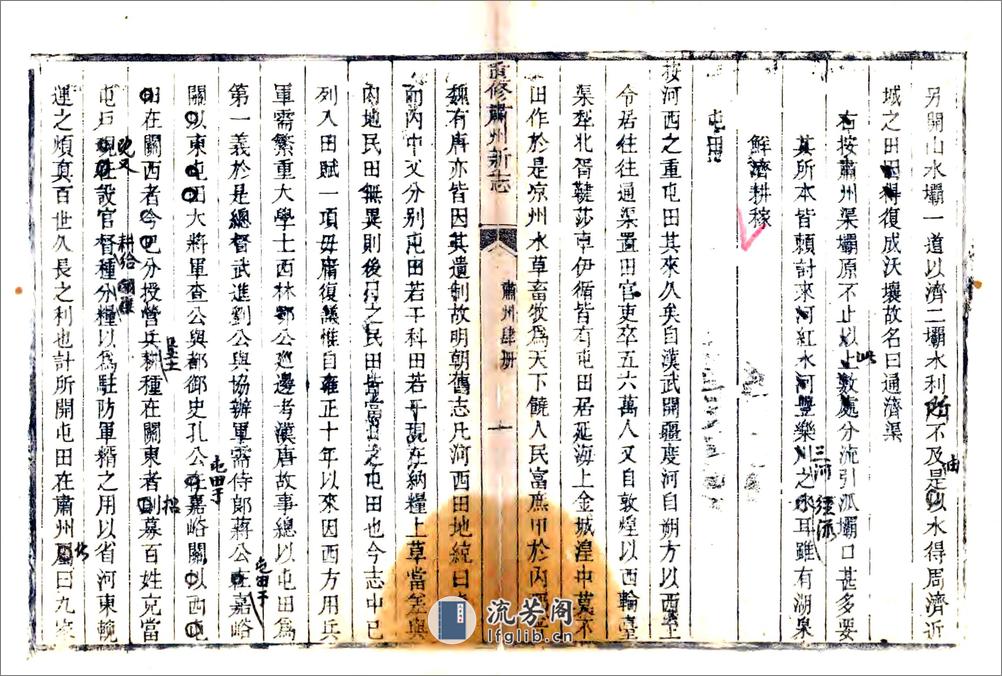 另開山水壩一道以濟二壩水利所不及是以水得周濟近
城之田因得復成沃壤故名曰通濟渠
右按肅州渠壩原不止以上數處分流引派壩口甚多要
其所本皆賴討來河紅水河豐樂川之水耳雖有湖泉
鮮濟耕稼
屯田
按河西之重屯田其來久矣自漢武開疆度河自朔方以西至
令居往往通渠置田官吏卒五六萬人又自敦煌以西輪臺
渠犁北胥鞬莎車伊循皆有屯田居延海上金城湟中莫不
田作於是凉州水草畜牧爲天下饒人民富庶甲於內
重修肅州新志
肅州肆册
一
魏有唐亦皆因其遺制故明朝舊志凡河西田地統曰
而內中又分别屯田若干科田若干現在納糧上草當差與
內地民田無異則後日之民田皆當日之屯田也今志中已
列入田賦一項毋庸復議惟自雍正十年以來因西方用兵
軍需繁重大學士西林鄂公巡邊考漢唐故事總以屯田爲
第一義於是總督武進劉公與協辦軍需侍郎蔣公在嘉峪
屯田于
關以東屯田大將軍查公與都御史孔公在嘉峪關以西屯
屯田于
田在關西者今已分授營兵耕種在關東者則募百姓充當
招
屯戶現在設官督種分糧以爲駐防軍糈之用以省河東輓
耕給
運之煩真百世久長之利也計所開屯田在肅州屬曰九家
三河
此
由